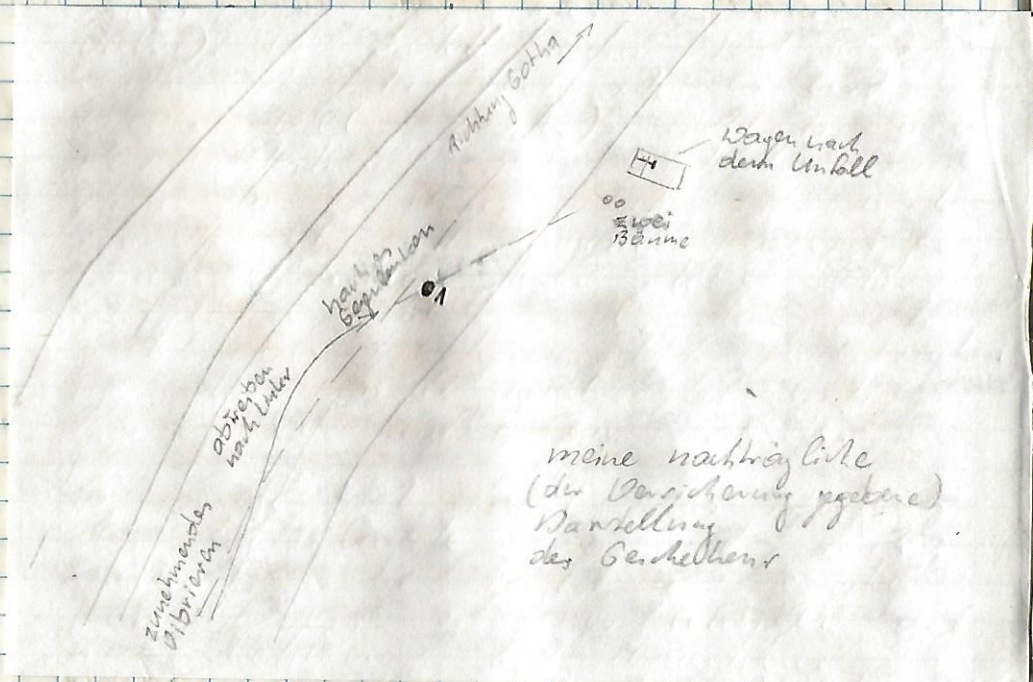 Richtung Gotha
Wagen nach
dem Unfall
zwei
Bäume
hartes
Gegenlenken
1
abtreiben
nach links
zunehmendes
Vibrieren
meine nachträgliche
(der Versicherung gegebene)
Darstellung
des Geschehens